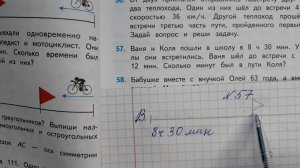 поехали одновременно на-
педист и мотоциклист. Они
Сколько времени был
ий из них?
треугольников? Выпиши наз-
моугольных и остроугольных
резок AC — ось симметрии
111. Одно
два теплохода. Один из них шёл до встречи 4
скоростью 36 км/ч. Другой теплоход прошё
встречи третью часть пути, пройденного первым
Задай вопрос и реши задачу.
57. Ваня и Коля пошли в школу в 8 ч 30 мин. У
лы они встретились. Ваня шёл до встречи с
12 мин. Сколько минут был в пути Коля?
58. Бабушке вместе с внучкой Олей 63 года, а вме
№57
В.
8ч 30 мин.